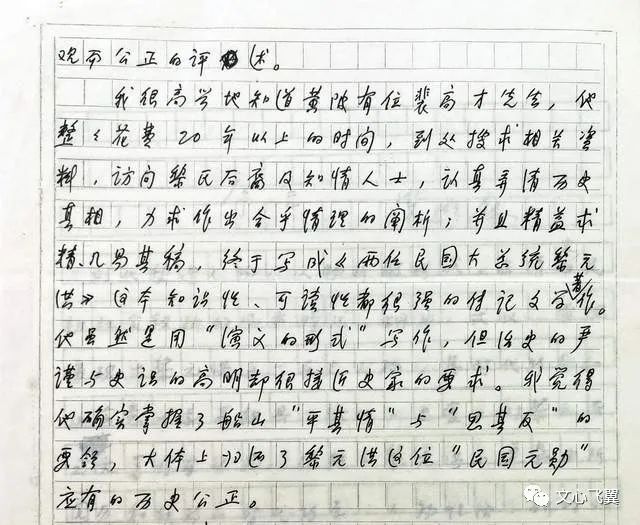 观而公正的评述。
我很高兴地知道黄陂有位裴高才先生,他
整整花费20年以上的时间,到处搜求相关资
料,访问黎氏后裔及知情人士,认真弄清历史
真相,力求作出合乎情理的阐析;并且精益求
精、几易其稿,终于写成《两任民国大总统黎元
洪》这本知识性、可读性都很强的传记文学著作。
他虽然是用“演义的形式”写作,但治史的严
谨与史识的高明却很接近史家的要求。我觉得
他确实掌握了船山“平其情”与“思其反”的
要领,大体上归还了黎元洪这位“民国元勋”
应有的历史公正。
文心飞翼